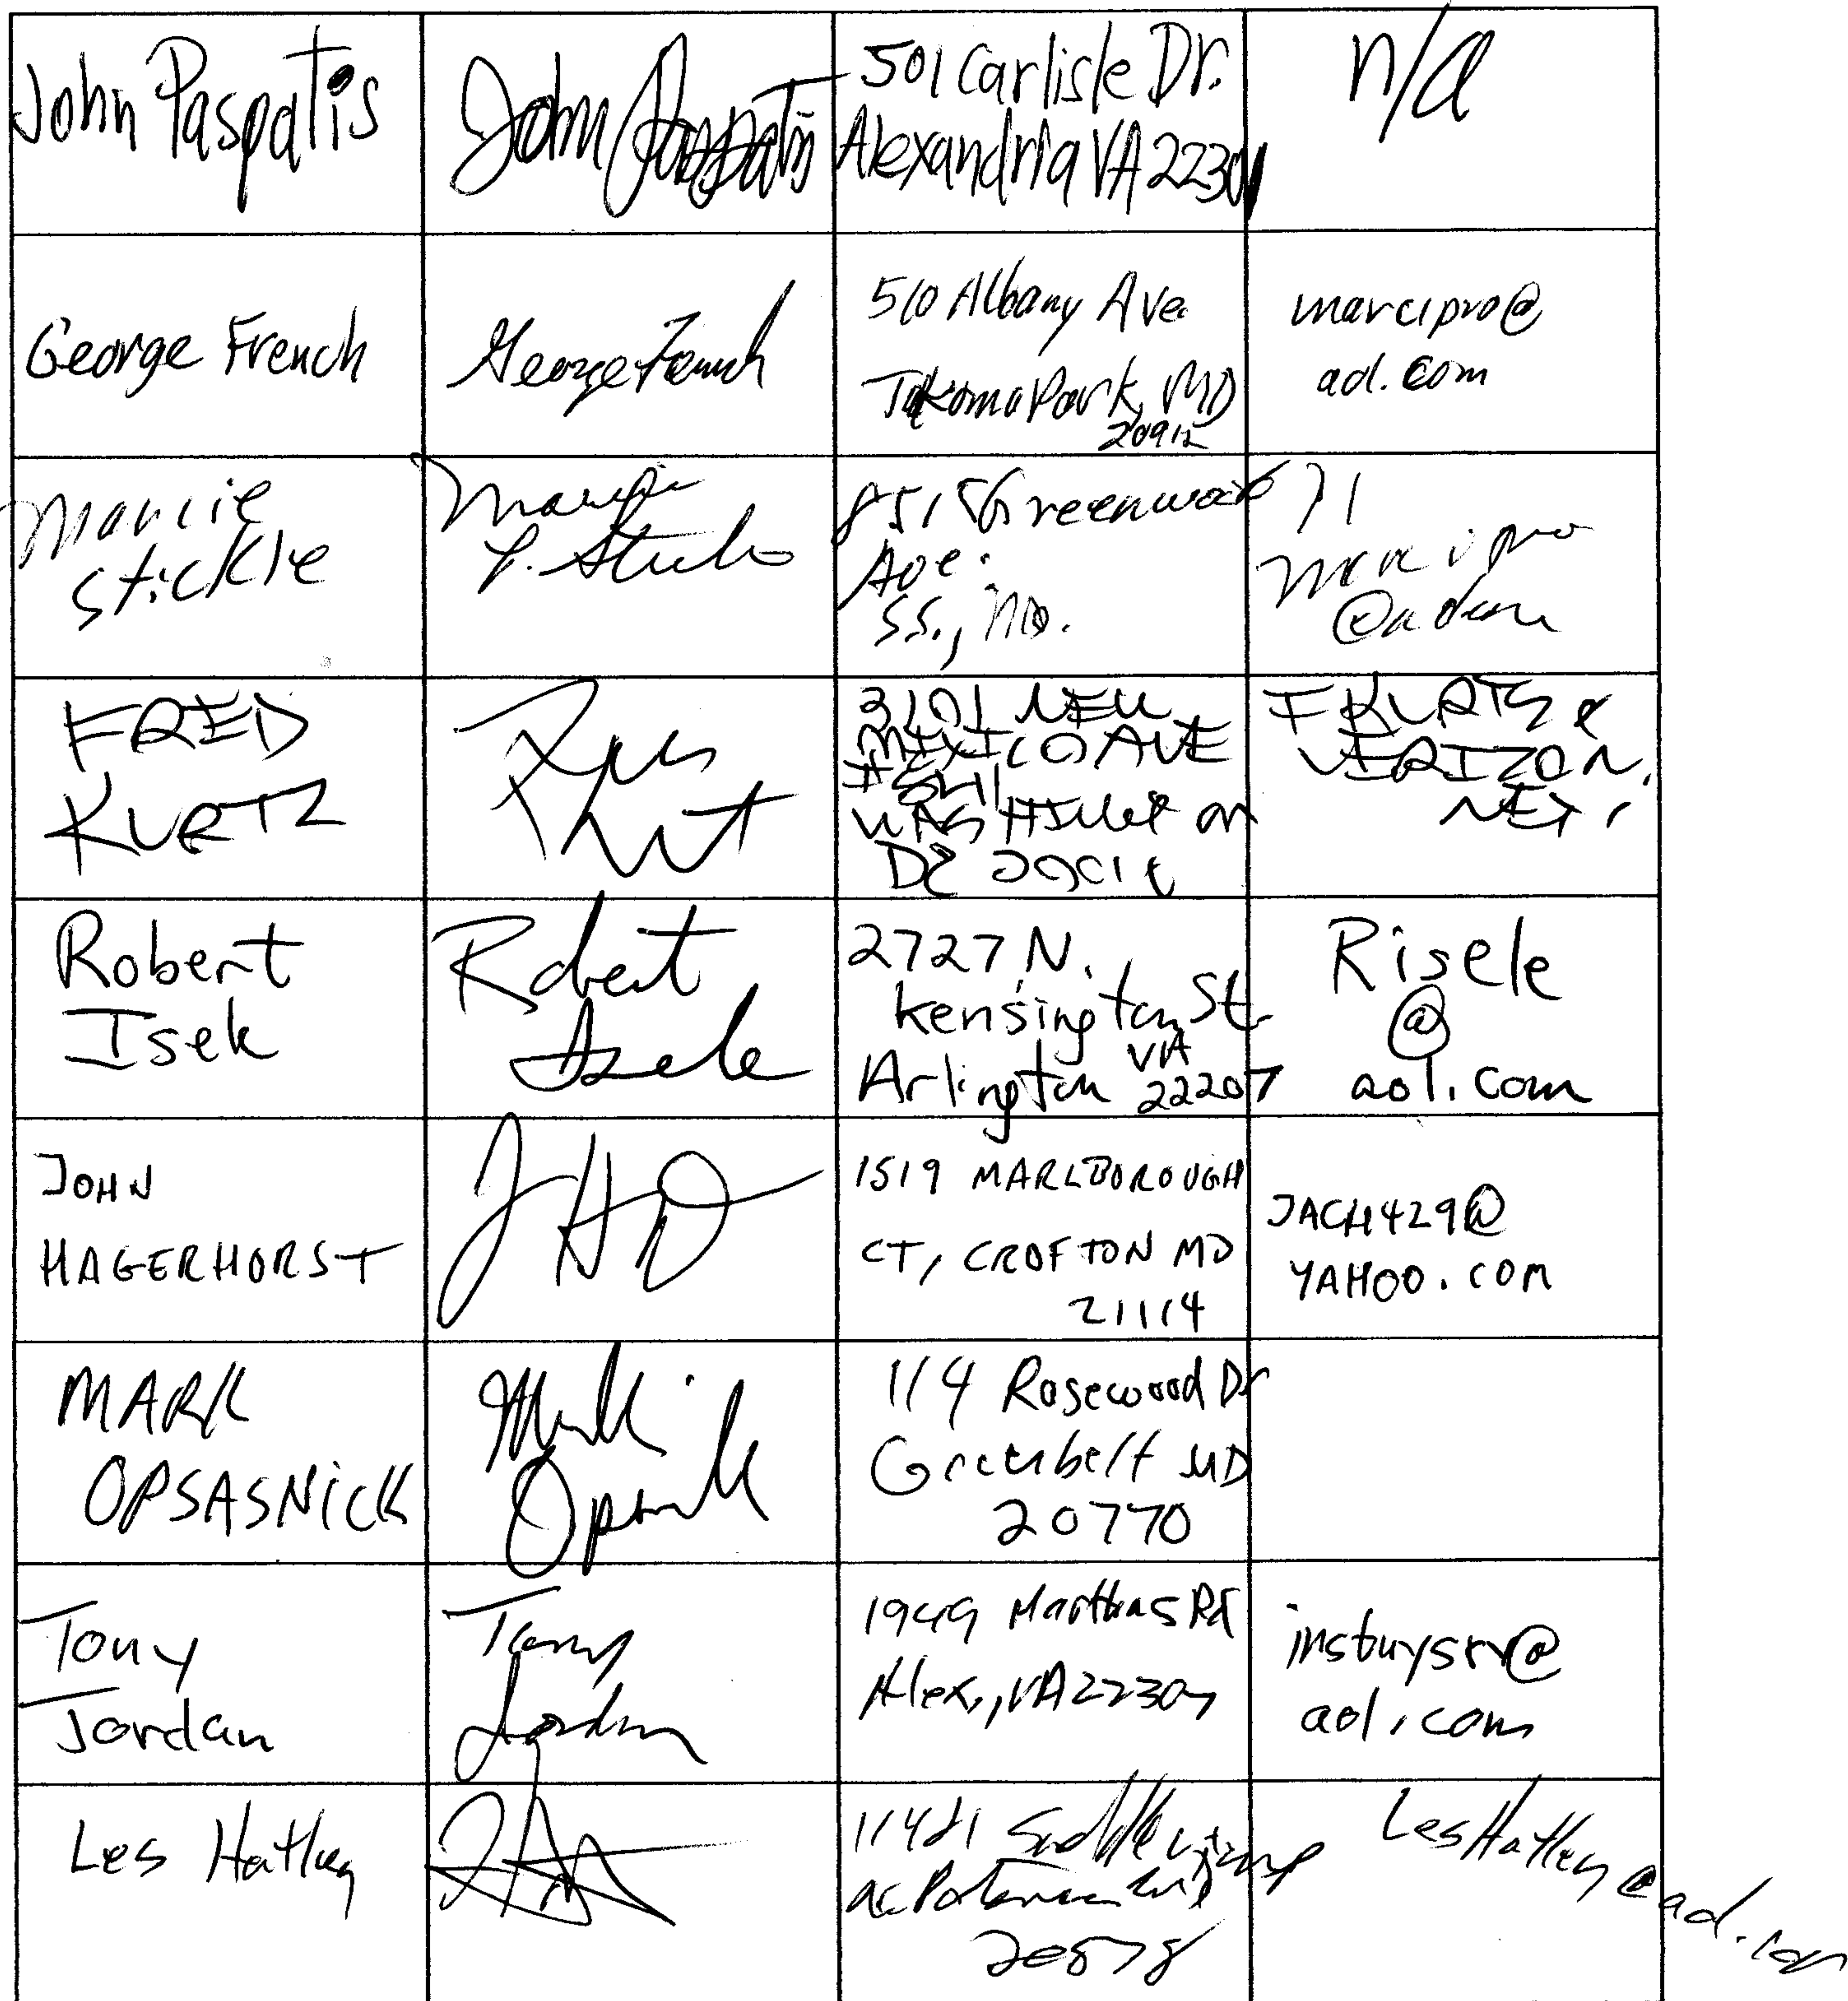 John Paspatis
John Paspatis
501 Carlisle Dr.
Alexandria VA 22301
n/a
George French
George French
510 Albany Ave
Takoma Park, MD
20912
marcipro@
aol.com
Marcie
Stickle
Marcie
P. Stickle
8515 Greenwood
Ave.
SS., MD.
71
marcipro
@aol.com
FRED
KURTZ
3101 NEW
MEXICO AVE
#541
WASHINGTON
DC
FKURTZ@
VERIZON.
NET
Robert
Isek
Robert
Isele
2727 N.
Kensington St.
VA
Arlington 22207
Risele
@
aol.com
JOHN
HAGERHORST
1519 MARLBOROUGH
CT, CROFTON MD
21114
JACH429@
YAHOO.COM
MARK
OPSASNICK
114 Rosewood Dr
Greenbelt MD
20770
Tony
Jordan
Tony
Jordan
1949 Marthas Rd
Alex., VA 22307
instuysrv@
aol.com
Les Hatley
20878
LesHatley@aol.com